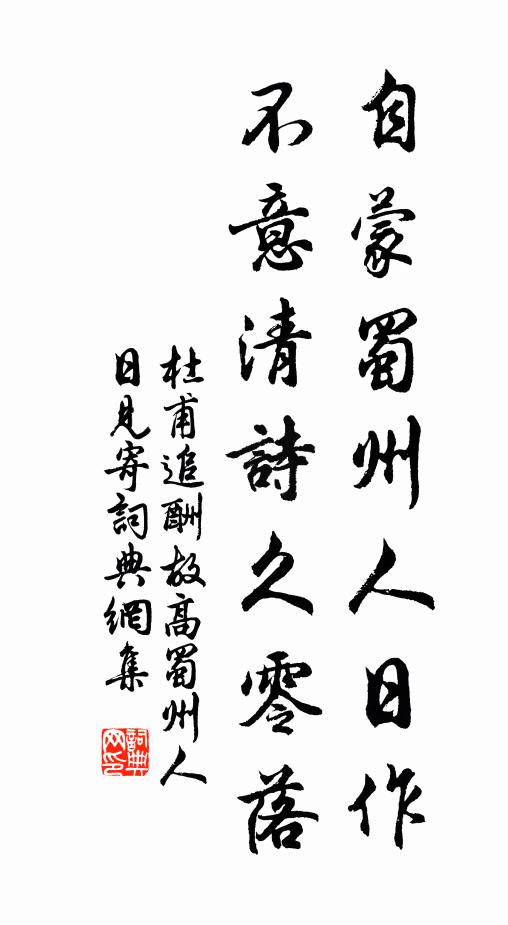 自蒙蜀州人日作
不意清詩久零落
杜甫追酬故高蜀州人
日見寄詞典網集
詞典
网印